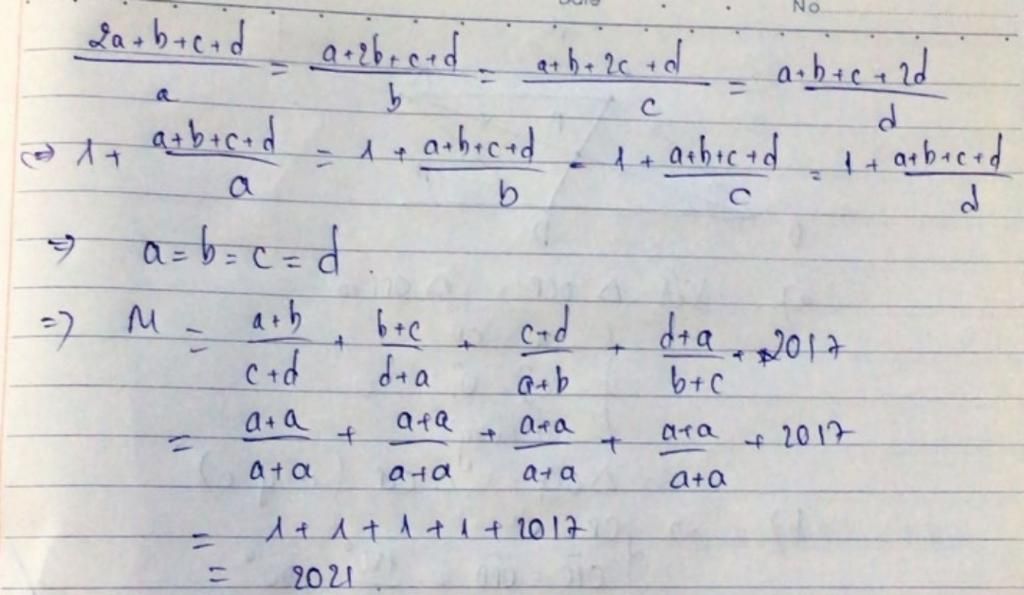 No
(2a+b+c+d)/a = (a+2b+c+d)/b = (a+b+2c+d)/c = (a+b+c+2d)/d
⇔ 1 + (a+b+c+d)/a = 1 + (a+b+c+d)/b = 1 + (a+b+c+d)/c = 1 + (a+b+c+d)/d
⇒ a = b = c = d.
⇒ M = (a+b)/(c+d) + (b+c)/(d+a) + (c+d)/(a+b) + (d+a)/(b+c) + 2017
= (a+a)/(a+a) + (a+a)/(a+a) + (a+a)/(a+a) + (a+a)/(a+a) + 2017
= 1 + 1 + 1 + 1 + 2017
= 2021